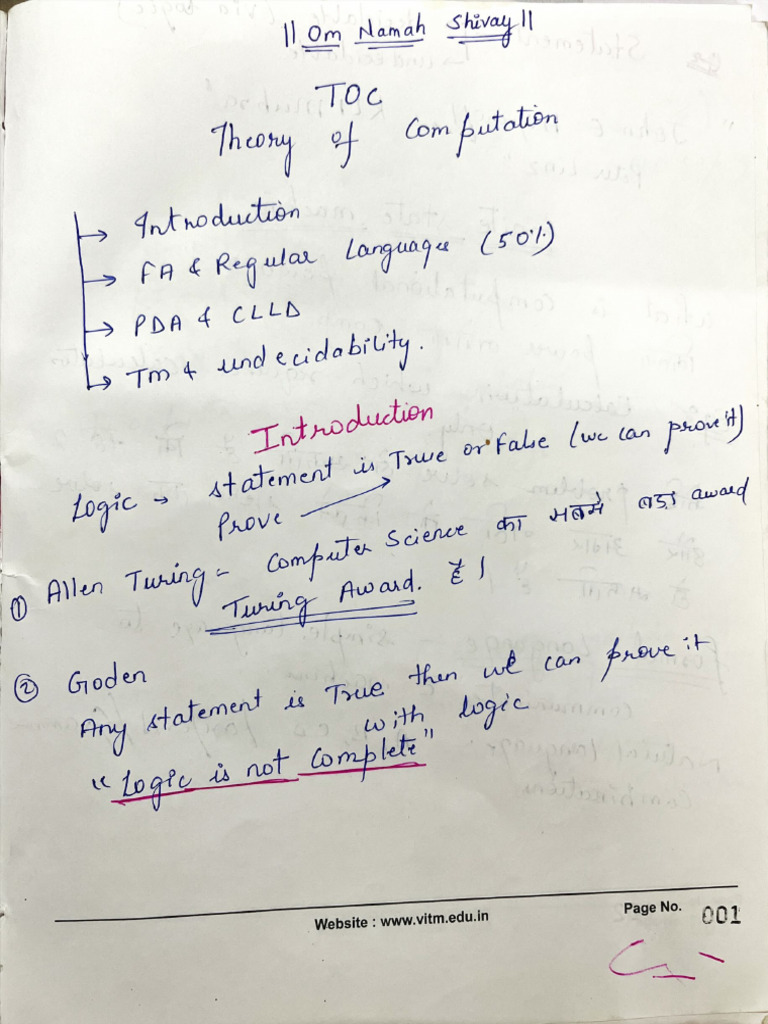 || Om Namah Shivay ||
TOC
Theory of Computation
Introduction
FA & Regular Languages (50%)
PDA & CLLD
TM & undecidability.
Introduction
Logic → statement is True or False (we can prove it)
Prove
① Allen Turing = Computer Science का सबसे बड़ा award
Turing Award. है।
② Goden
Any statement is True then we can prove it
with logic
"Logic is not Complete"
Website : www.vitm.edu.in
Page No. 001